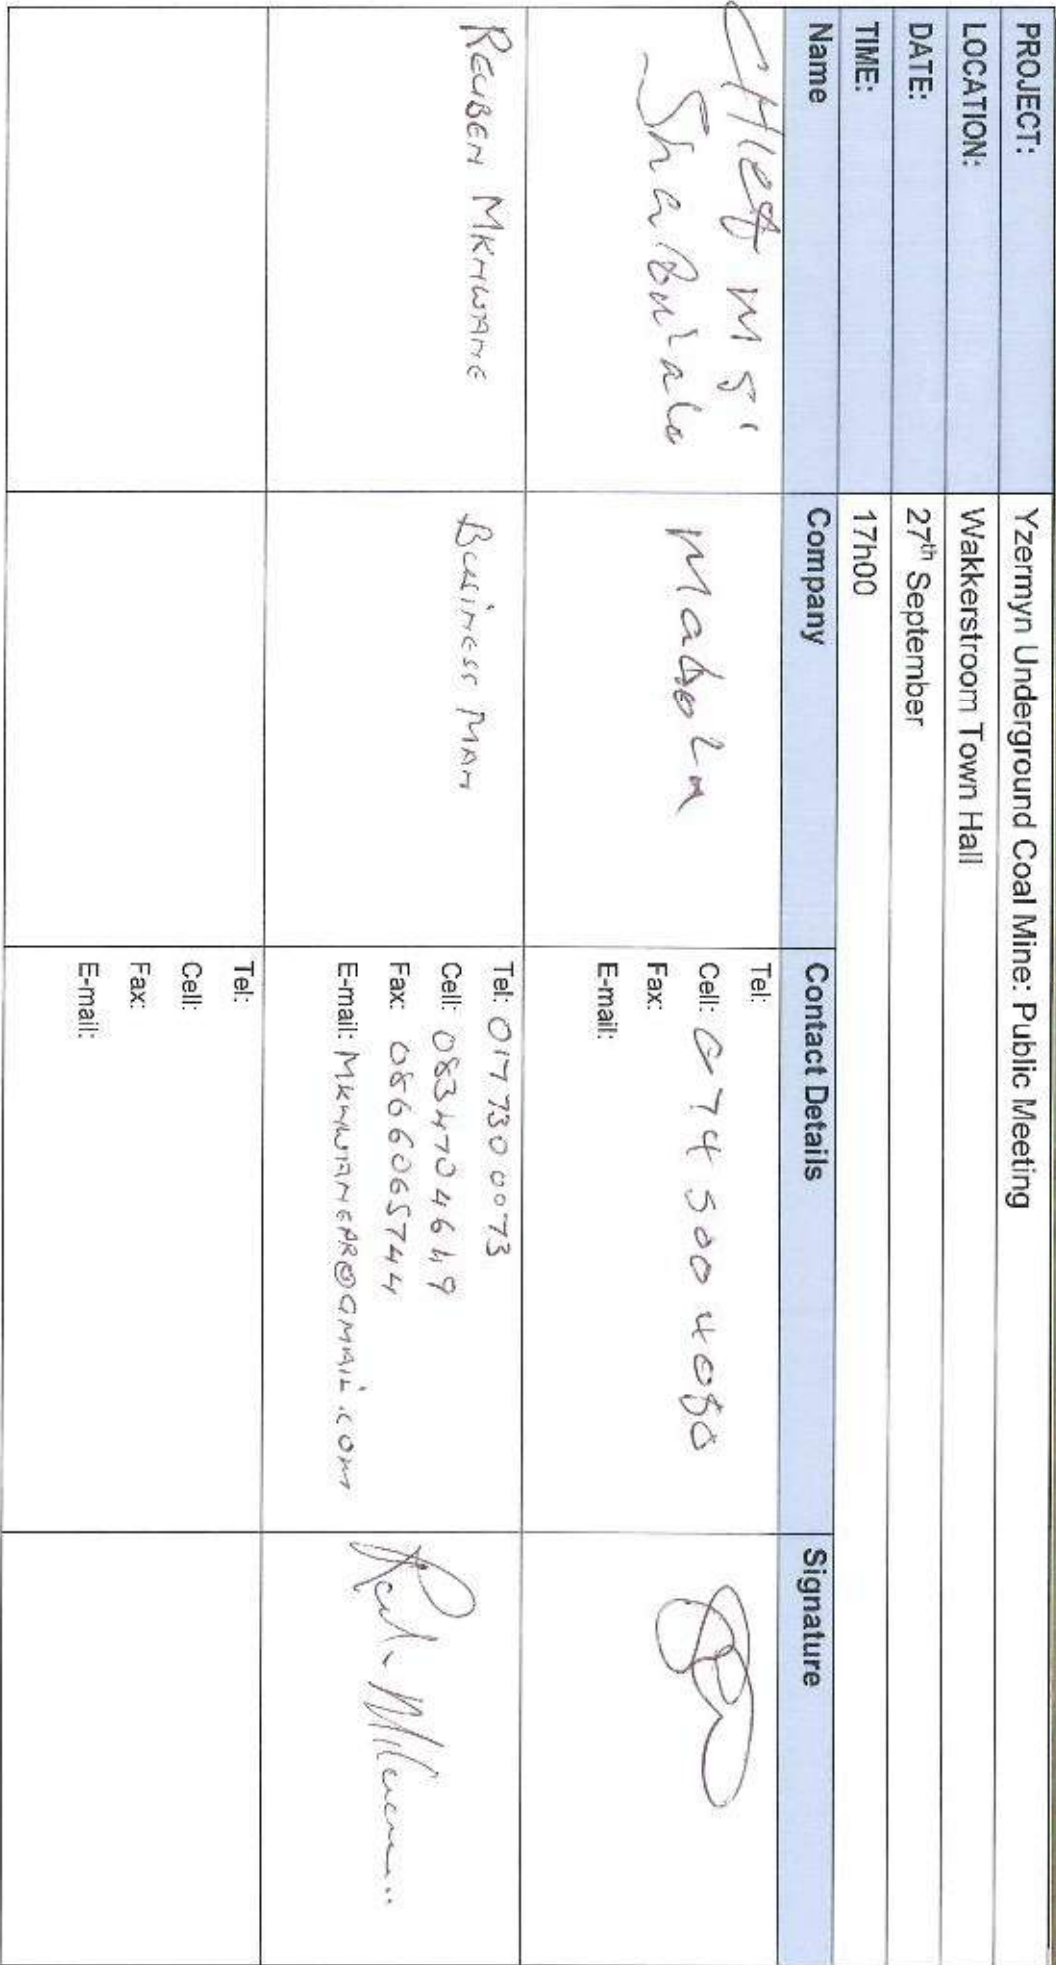 PROJECT: Yzermyn Underground Coal Mine: Public Meeting
LOCATION: Wakkerstroom Town Hall
DATE: 27th September
TIME: 17h00
Name Company Contact Details Signature
Chief M S
Shabalala
Mabola
Tel:
Cell: 074 500 4080
Fax:
E-mail:
REUBEN MKHWANE
BUSINESS MAN
Tel: 017 730 0073
Cell: 0834704649
Fax: 0866065744
E-mail: MKHWANEPR@GMAIL.COM
Tel:
Cell:
Fax:
E-mail: